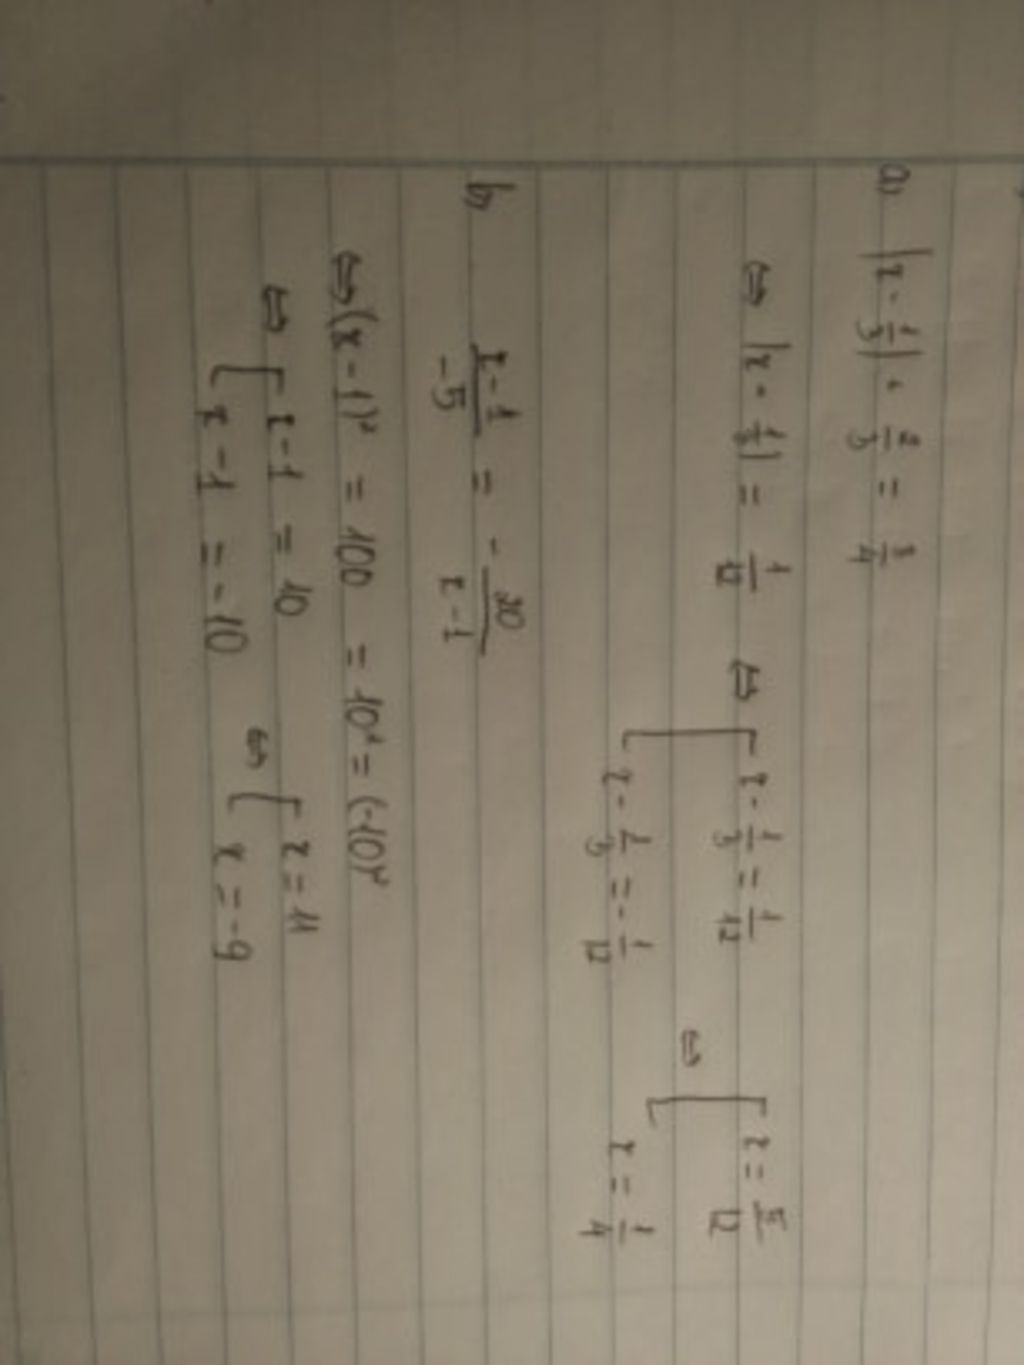 a) |x - 1/3| + 2/3 = 3/4
⇔ |x - 1/3| = 1/12 ⇔ [ x - 1/3 = 1/12 ⇔ [ x = 5/12
x - 1/3 = -1/12 x = 1/4
b) (x-1)/(-5) = - 20/(x-1)
⇔ (x-1)² = 100 = 10² = (-10)²
⇔ [ x-1 = 10 ⇔ [ x = 11
x-1 = -10 x = -9